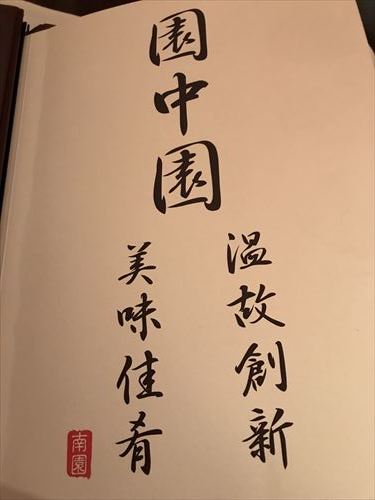 園中園
温故創新
美味佳肴
南園